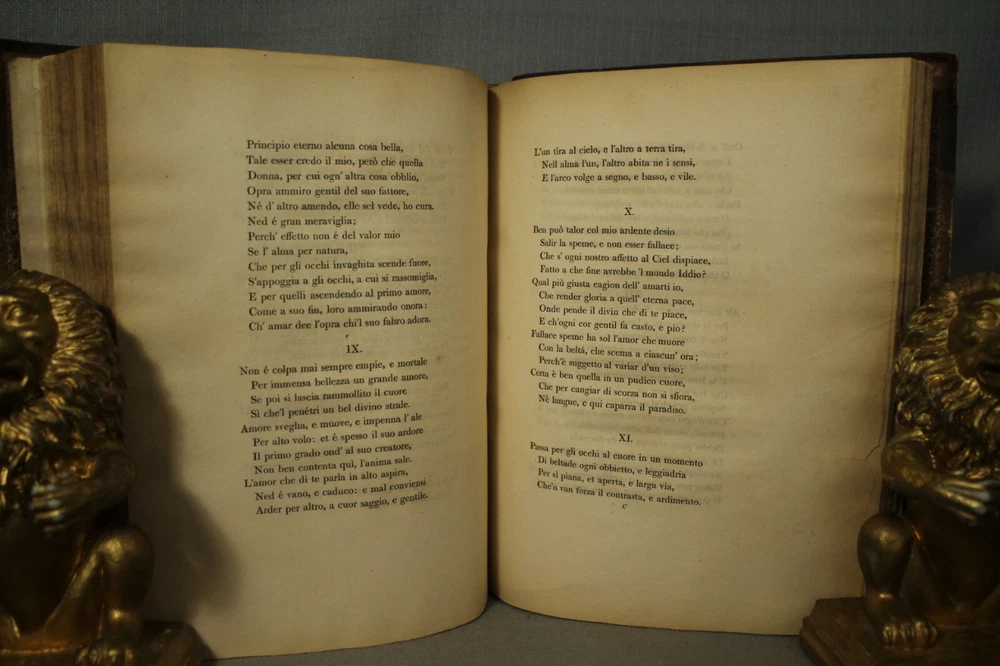 Principio eterno alcuna cosa bella,
Tale esser credo il mio, però che quella
Donna, per cui ogn' altra cosa obblio,
Opra ammiro gentil del suo fattore,
Né d' altro amendo, elle sel vede, ho cura.
Ned é gran meraviglia;
Perch' effetto non é del valor mio
Se l' alma per natura,
Che per gli occhi invaghita scende fuore,
S'appoggia a gli occhi, a cui si rassomiglia,
E per quelli ascendendo al primo amore,
Come a suo fin, loro ammirando onora:
Ch' amar dee l'opra chi'l suo fabro adora.
IX.
Non é colpa mai sempre empie, e mortale
Per immensa bellezza un grande amore,
Se poi si lascia rammollito il cuore
Sì che'l penétri un bel divino strale.
Amore sveglia, e muove, e impenna l' ale
Per alto volo: et é spesso il suo ardore
Il primo grado ond' al suo creatore,
Non ben contenta quì, l'anima sale.
L'amor che di te parla in alto aspira,
Ned é vano, e caduco: e mal conviensi
Arder per altro, a cuor saggio, e gentile.
L'un tira al cielo, e l'altro a terra tira,
Nell alma l'un, l'altro abita ne i sensi,
E l'arco volge a segno, e basso, e vile.
X.
Ben può talor col mio ardente desio
Salir la speme, e non esser fallace;
Che s' ogni nostro affetto al Ciel dispiace,
Fatto a che fine avrebbe 'l mondo Iddio?
Qual più giusta cagion dell' amarti io,
Che render gloria a quell' eterna pace,
Onde pende il divin che di te piace,
E ch'ogni cor gentil fa casto, e pio?
Fallace speme ha sol l'amor che muore
Con la beltá, che scema a ciascun' ora;
Perch'è suggetto al variar d'un viso;
Certa è ben quella in un pudico cuore,
Che per cangiar di scorza non si sfiora,
Nè langue, e qui caparra il paradiso.
XI.
Passa per gli occhi al cuore in un momento
Di beltade ogni obbietto, e leggiadria
Per si piana, et aperta, e larga via,
Che'n van forza il contrasta, e ardimento.
C